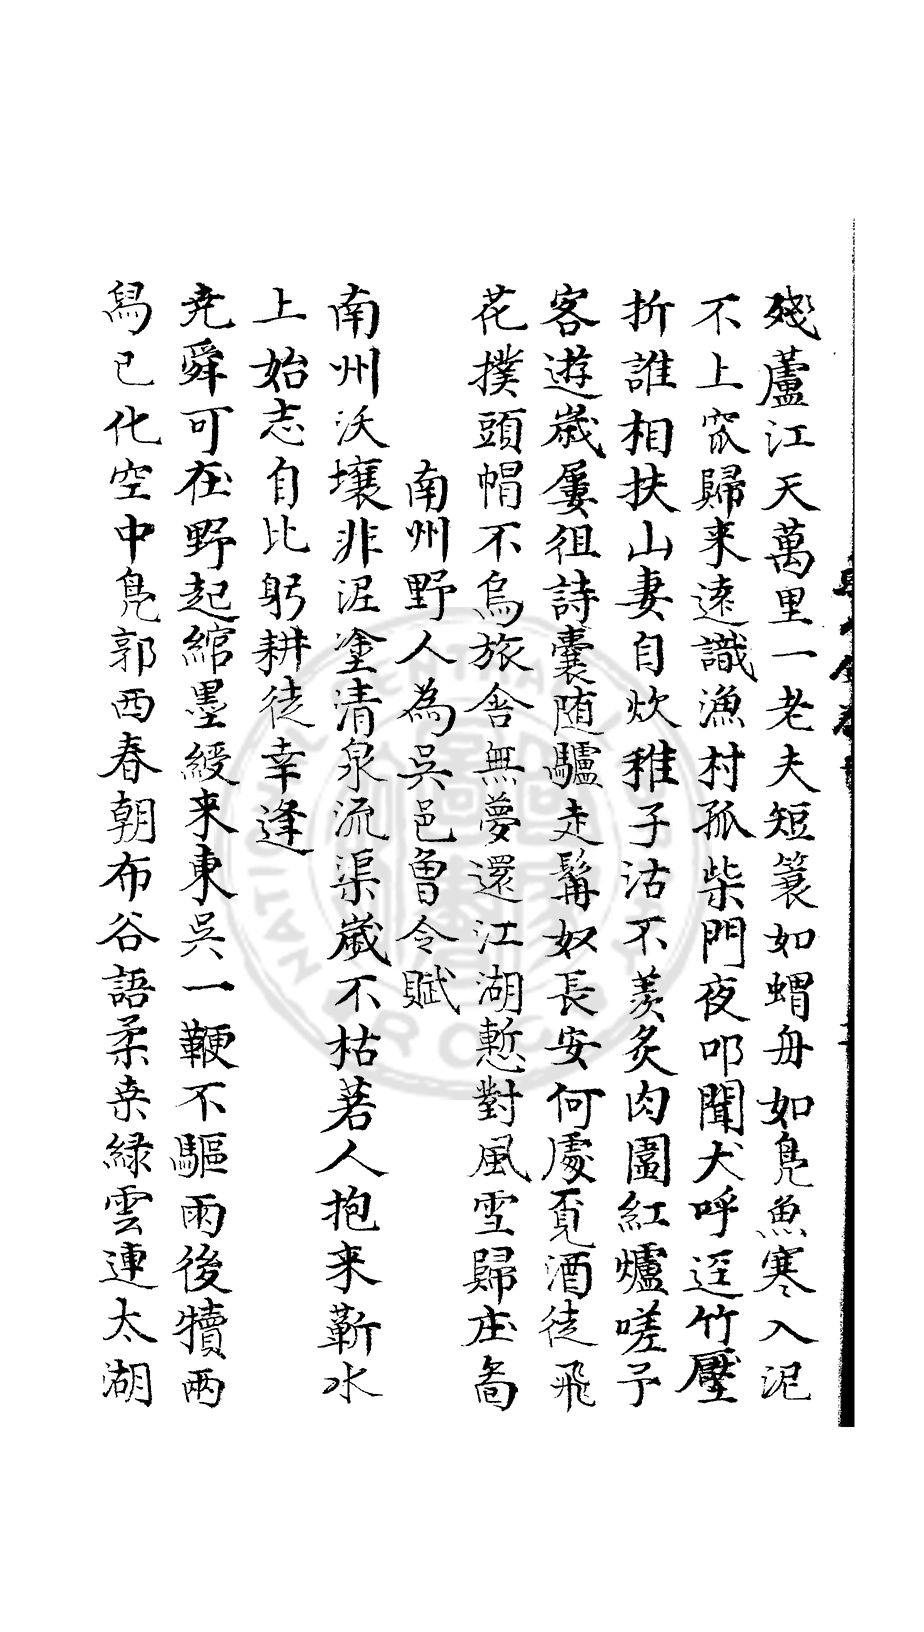 殘蘆江天萬里一老夫短蓑如蝟舟如鳧魚寒入泥
不上罛歸来遠識漁村孤柴門夜叩聞犬呼逕竹壓
折誰相扶山妻自炊稚子沽不羨炙肉圍紅爐嗟予
客遊歲屢徂詩囊随驢走髯奴長安何處覓酒徒飛
花撲頭帽不烏旅舍無夢還江湖慙對風雪歸庄啚
南州野人為吳邑魯令賦
南州沃壤非泥塗清泉流渠歲不枯若人抱来蘄水
上始志自比躬耕徒幸逢
尭舜可在野起綰墨綬来東吳一鞭不驅雨後犢兩
舄已化空中鳧郭西春朝布谷語柔桒緑雲連太湖